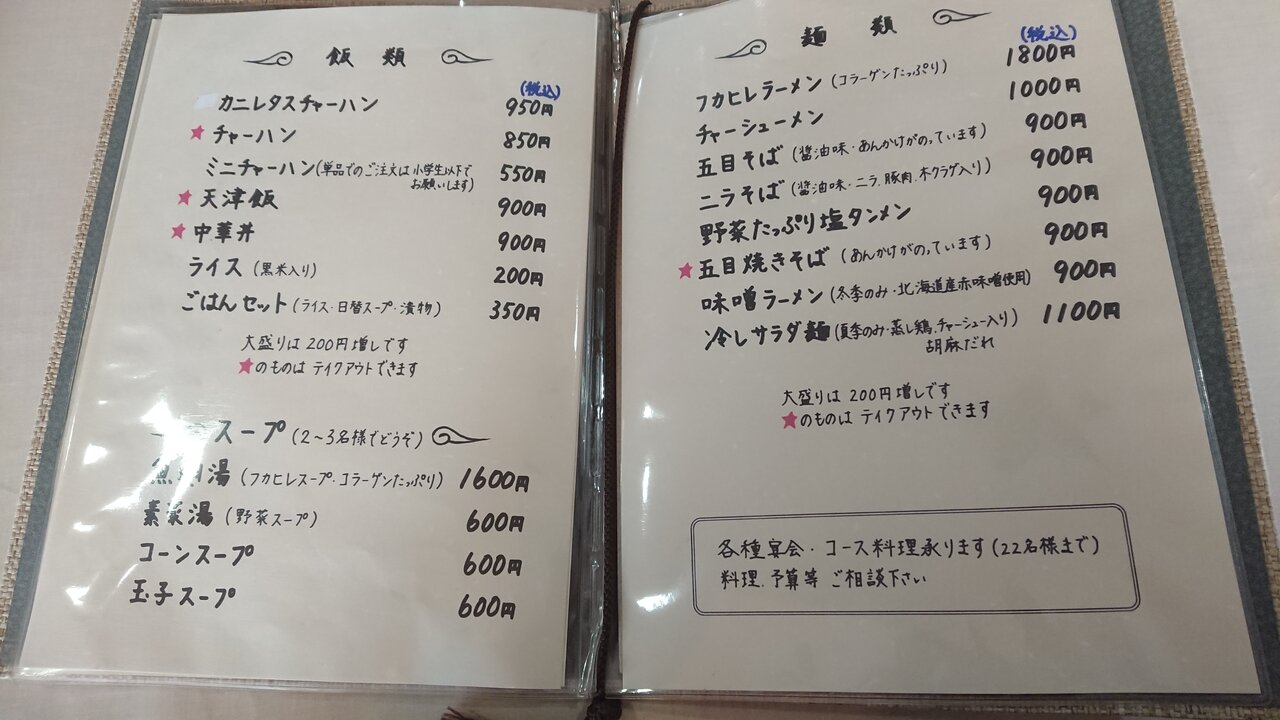 飯類
(税込)
カニレタスチャーハン 950円
★チャーハン 850円
ミニチャーハン(単品でのご注文は小学生以下で 550円
お願いします)
★天津飯 900円
★中華丼 900円
ライス(黒米入り) 200円
ごはんセット(ライス・日替スープ・漬物) 350円
大盛りは200円増しです
★のものは テイクアウトできます
スープ(2〜3名様でどうぞ)
湯(フカヒレスープ・コラーゲンたっぷり) 1600円
素菜湯(野菜スープ) 600円
コーンスープ 600円
玉子スープ 600円
麺類
(税込)
フカヒレラーメン(コラーゲンたっぷり) 1800円
チャーシューメン 1000円
五目そば(醬油味・あんかけがのっています) 900円
ニラそば(醬油味・ニラ、豚肉、木クラゲ入り) 900円
野菜たっぷり塩タンメン 900円
★五目焼きそば(あんかけがのっています) 900円
味噌ラーメン(冬季のみ・北海道産赤味噌使用) 900円
冷しサラダ麺(夏季のみ・蒸し鶏、チャーシュー入り) 1100円
胡麻だれ
大盛りは200円増しです
★のものは テイクアウトできます
各種宴会・コース料理承ります(22名様まで)
料理、予算等 ご相談下さい